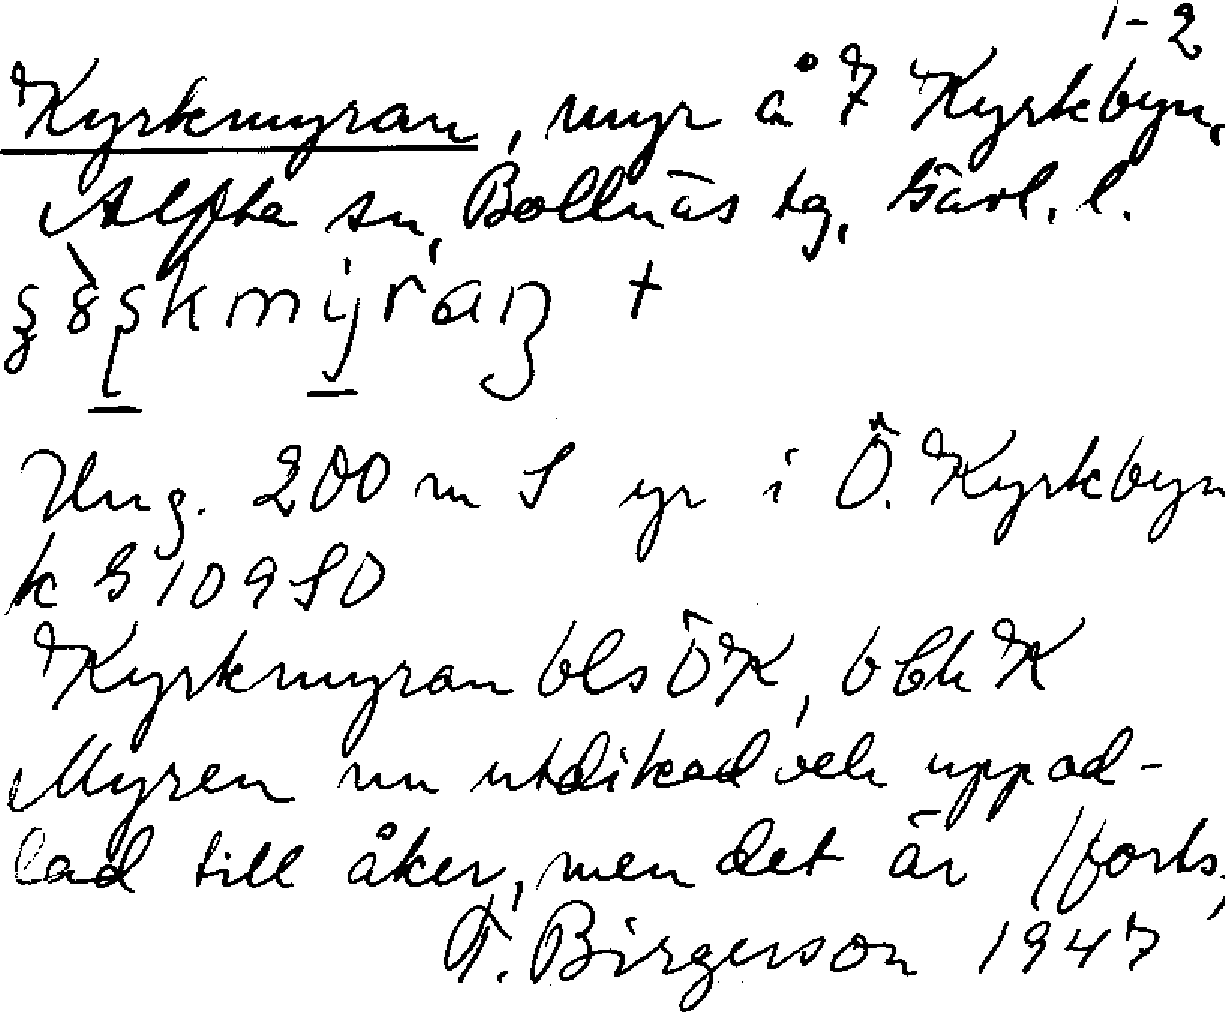 1-2
Kyrkmyran, myr å 7 Kyrkbyn,
Alfta sn, Bollnäs tg, Gävl. l.
Ung. 200 m S yr i Ö. Kyrkbyn
k G 109 SO
Kyrkmyran bls ÖK, bbh K
Myren nu utdikad och uppod-
lad till åker, men det är /forts,
F. Birgerson 1947